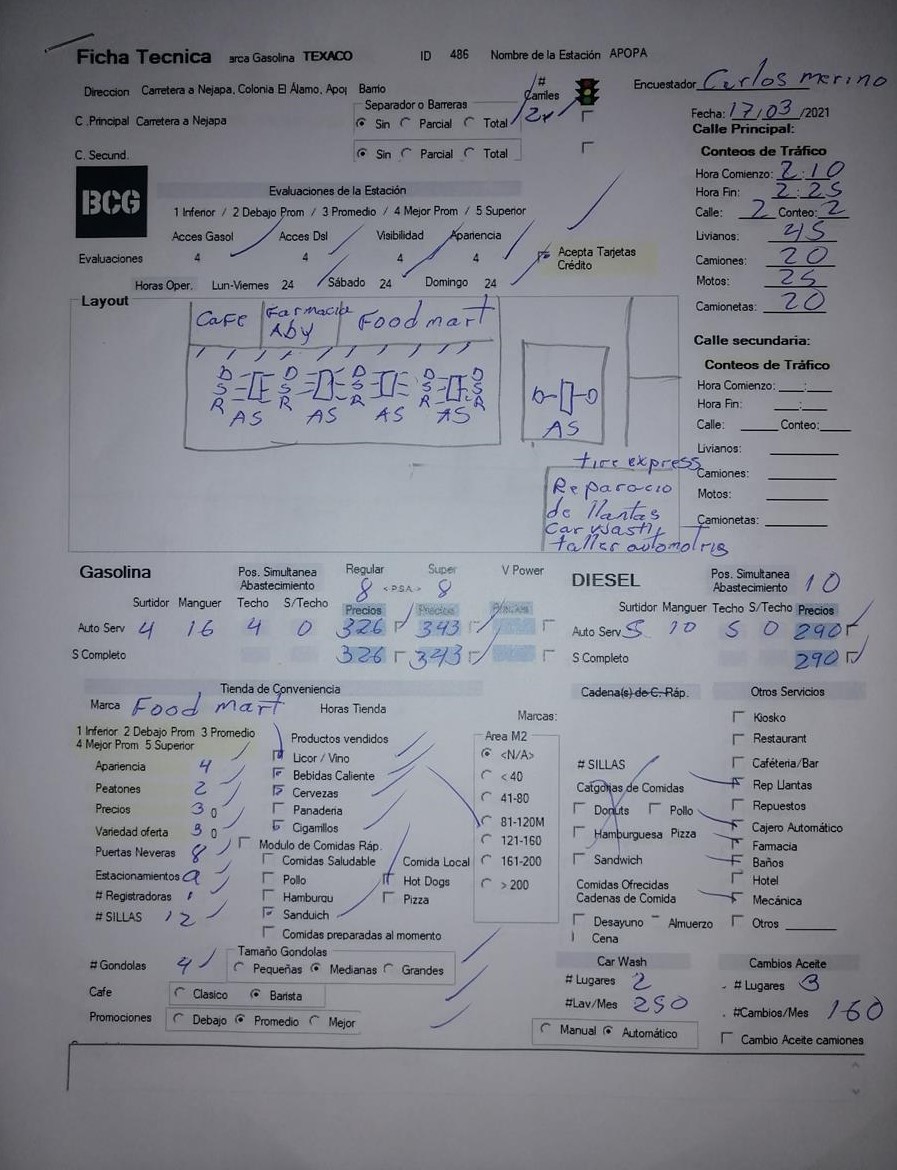 Ficha Tecnica arca Gasolina TEXACO ID 486 Nombre de la Estación APOPA
Direccion Carretera a Nejapa, Colonia El Álamo, Apo Barrio
# Carriles
Encuestador Carlos merino
C .Principal Carretera a Nejapa
Separador o Barreras
Sin Parcial Total
2x
Fecha: 17/03/2021
C. Secund.
Sin Parcial Total
BCG
Evaluaciones de la Estación
1 Inferior / 2 Debajo Prom / 3 Promedio / 4 Mejor Prom / 5 Superior
Acces Gasol Acces Dsl Visibilidad Apariencia
Evaluaciones 4 4 4 4
Acepta Tarjetas Crédito
Horas Oper. Lun-Viernes 24 Sábado 24 Domingo 24
Calle Principal:
Conteos de Tráfico
Hora Comienzo: 2:10
Hora Fin: 2:25
Calle: 2 Conteo: 2
Livianos: 45
Camiones: 20
Motos: 25
Camionetas: 20
Calle secundaria:
Conteos de Tráfico
Hora Comienzo: __:__
Hora Fin: __:__
Calle: ____ Conteo:____
Livianos:
Camiones:
Motos:
Camionetas:
Layout
Cafe Farmacia Aby Food mart
D S R D S R D S R D S R D S R
AS AS AS AS
D D
AS
tire express
Reparacio
de llantas
Car Wash,
taller automotris
Gasolina
Pos. Simultanea Abastecimiento
Regular Super V Power
8 < P.S.A.> 8
Surtidor Manguer Techo S/Techo Precios Precios
Auto Serv 4 16 4 0 326 343
S Completo 326 343
DIESEL
Pos. Simultanea Abastecimiento 10
Surtidor Manguer Techo S/Techo Precios
Auto Serv 5 10 5 0 290
S Completo 290
Tienda de Conveniencia
Marca Food mart Horas Tienda
1 Inferior 2 Debajo Prom 3 Promedio
4 Mejor Prom 5 Superior
Apariencia 4
Peatones 2
Precios 3 0
Variedad oferta 3 0
Puertas Neveras 8
Estacionamientos 9
# Registradoras 1
# SILLAS 12
Productos vendidos
Licor / Vino
Bebidas Caliente
Cervezas
Panaderia
Cigarrillos
Modulo de Comidas Ráp.
Comidas Saludable Comida Local
Pollo Hot Dogs
Hamburgu Pizza
Sanduich
Comidas preparadas al momento
# Gondolas 4
Tamaño Gondolas
Pequeñas Medianas Grandes
Cafe Clasico Barista
Promociones Debajo Promedio Mejor
Marcas:
Area M2
<N/A>
< 40
41-80
81-120M
121-160
161-200
> 200
Cadena(s) de C. Ráp.
# SILLAS
Catgorias de Comidas
Donuts Pollo
Hamburguesa Pizza
Sandwich
Comidas Ofrecidas
Cadenas de Comida
Desayuno Almuerzo
Cena
Otros Servicios
Kiosko
Restaurant
Caféteria/Bar
Rep Llantas
Repuestos
Cajero Automático
Farmacia
Baños
Hotel
Mecánica
Otros
Car Wash
# Lugares 2
#Lav/Mes 250
Manual Automático
Cambios Aceite
# Lugares 3
#Cambios/Mes 160
Cambio Aceite camiones